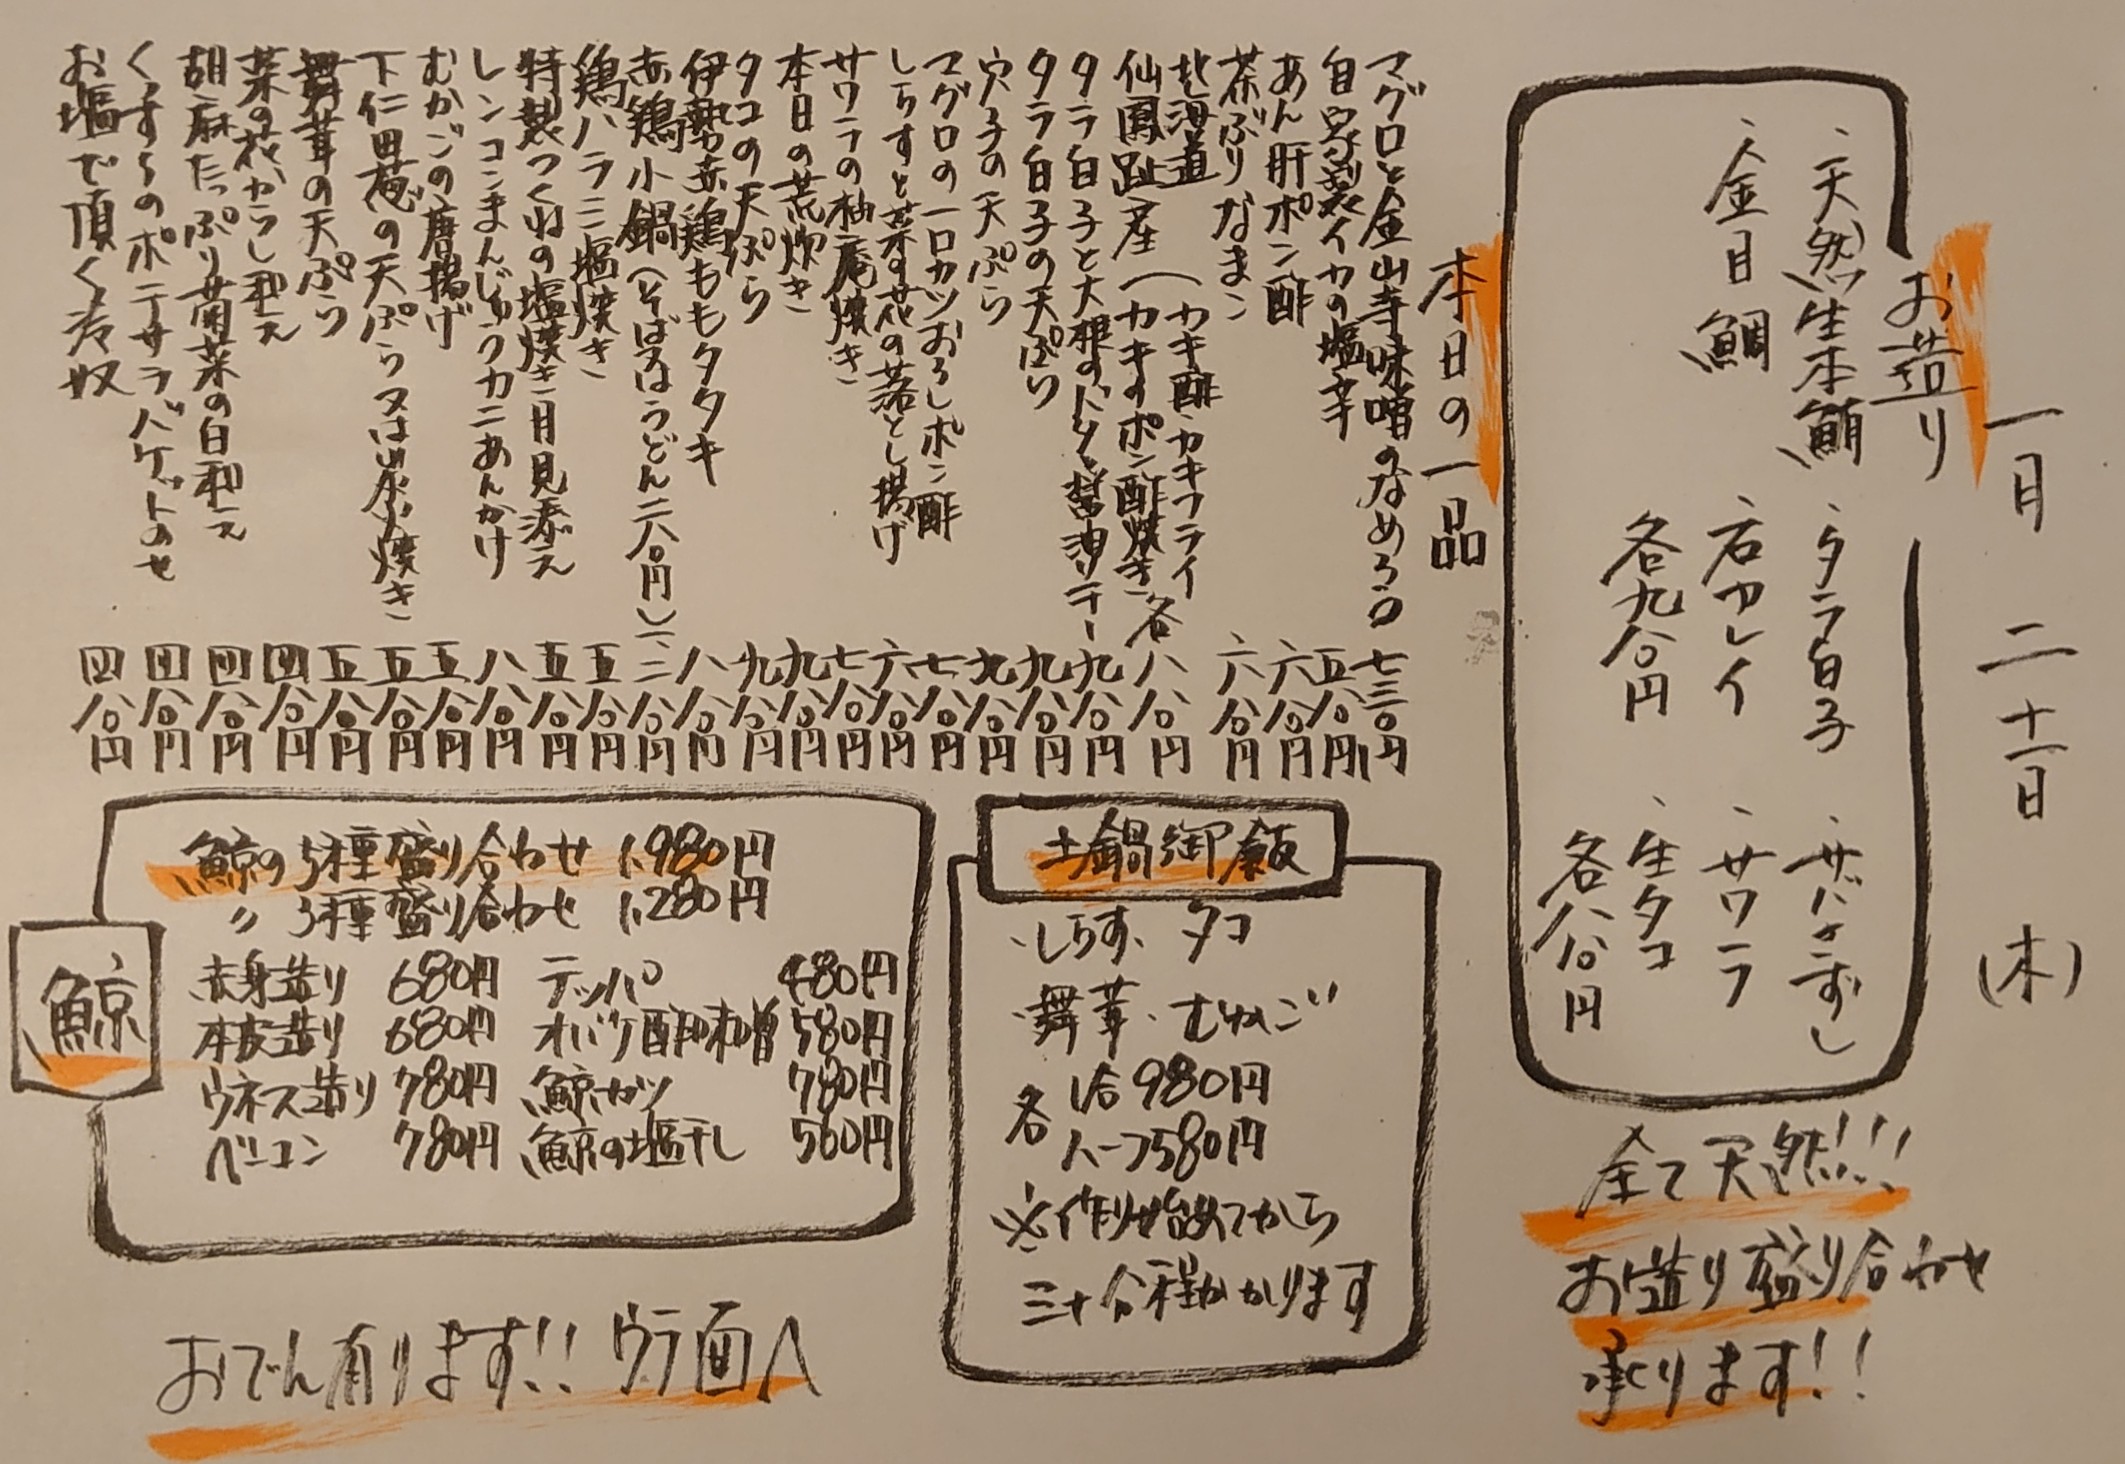 一月二十一日(木)
お造り
、天然生本鮪 、タラ白子 、サバきずし
、金目鯛 、石カレイ 、サワラ
各九八〇円 、生タコ
各八八〇円
全て天然!!!
お造り盛り合わせ
承ります!!
本日の一品
マグロと金山寺味噌のなめろう 七三〇円
自家製イカの塩辛 五八〇円
あん肝ポン酢 六八〇円
茶ぶりなまこ 六八〇円
北海道 (カキ酢・カキフライ
仙鳳趾産 (カキのポン酢焼き 各八八〇円
タラ白子と大根のバター醤油ソテー 九八〇円
タラ白子の天ぷら 九八〇円
穴子の天ぷら 九八〇円
マグロの一口カツおろしポン酢 七八〇円
しらすと菜の花の落とし揚げ 六八〇円
サワラの柚庵焼き 七八〇円
本日の荒炊き 九八〇円
タコの天ぷら 九八〇円
伊勢赤鶏ももタタキ 八八〇円
赤鶏小鍋(そば又はうどん二八〇円) 一、二八〇円
鶏ハラミ塩焼き 五八〇円
特製つくねの塩焼き月見添え 五八〇円
レンコンまんじゅうカニあんかけ 八八〇円
むかごの唐揚げ 五八〇円
下仁田葱の天ぷら又は炭火焼き 五八〇円
舞茸の天ぷら 五八〇円
菜の花からし和え 四八〇円
胡麻たっぷり菊菜の白和え 四八〇円
くずしのポテサラバゲットのせ 四八〇円
お塩で頂く冷奴 四八〇円
土鍋御飯
・しらす、タコ
・舞茸・むかご
各 1合980円
ハーフ580円
※作り始めてから
三十分程かかります
鯨
鯨の5種盛り合わせ 1,980円
〃 3種盛り合わせ 1,280円
赤身造り 680円 テッパ 480円
本皮造り 680円 オバケ酢味噌 580円
ウネス造り 780円 鯨カツ 780円
ベーコン 780円 鯨の塩干し 560円
おでん有ります!! ウラ面へ